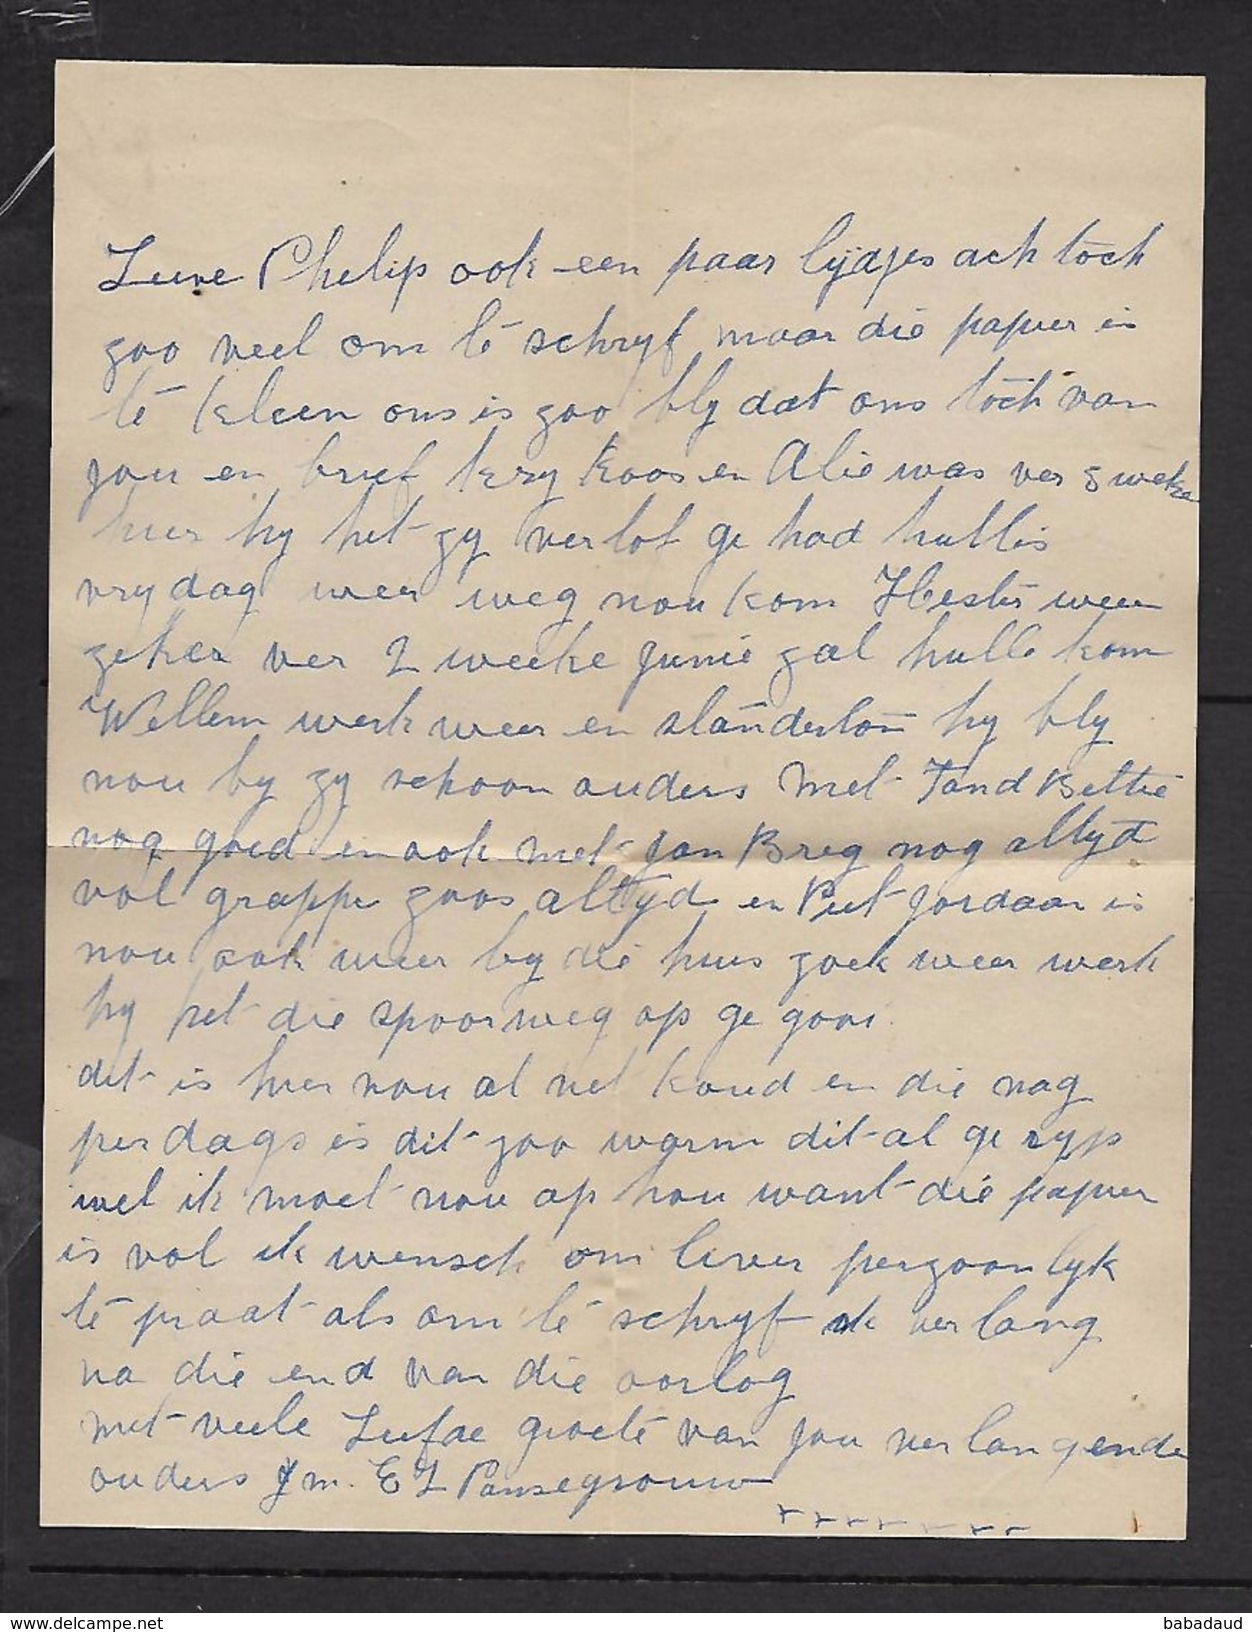 Lieve Philip ook een paar lijdjes ach töch
zoo veel om té schryf maar die papier is
té kleen ons is zoo bly dat ons töch van
jou en brief kry Koos en Alie was ver 3 weke
hier hy het zy verlof ge had hulle is
vrydag weer weg nou kom Hester weer
zeker ver 2 weeke Junie zal hulle kom
Willem werk weer en standerton hy bly
nou by zy schoon ouders met Tand Bettie
nog goed en ook met Jan Breg nog altyd
vol grappe zoos altyd en Piet Jordaan is
nou ook weer by die huis zoek weer werk
hy het die spoorweg op ge gooi
dit is hier nou al net koud en die nag
per dags is dit zoo warm dit al ge ryp
wel ik moet nou op hou want die papier
is vol ik wensch om liever perzoonlyk
té praat als om té schryf ik ver lang
na die end van die oorlog
met veele Liefde groeté van jou ver langende
ouders J m. E L Pansegrouw
babadaud